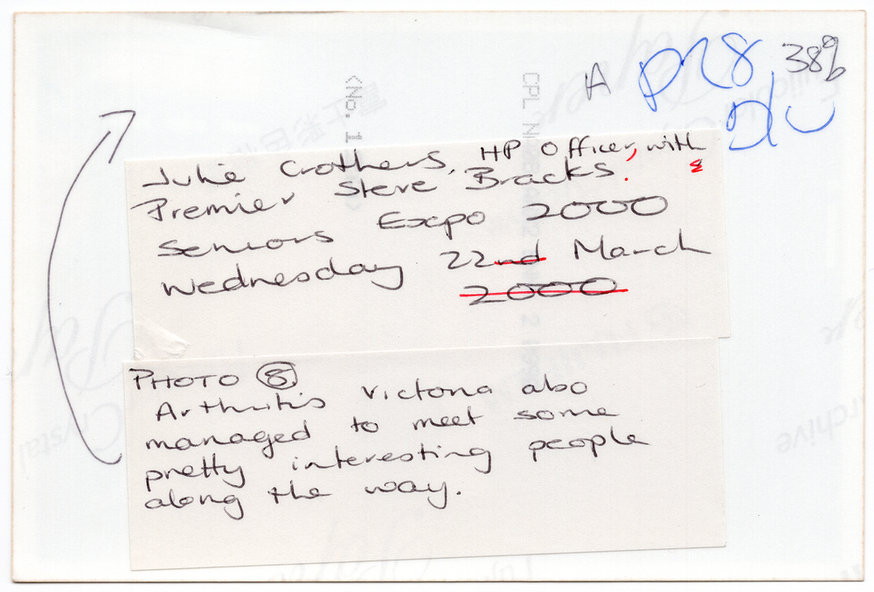 A PR8, 38%
Julie Crothers, HP Officer, with
Premier Steve Bracks.
Seniors Expo 2000
Wednesday 22nd March
2000
PHOTO 8
Arthritis Victoria also
managed to meet some
pretty interesting people
along the way.